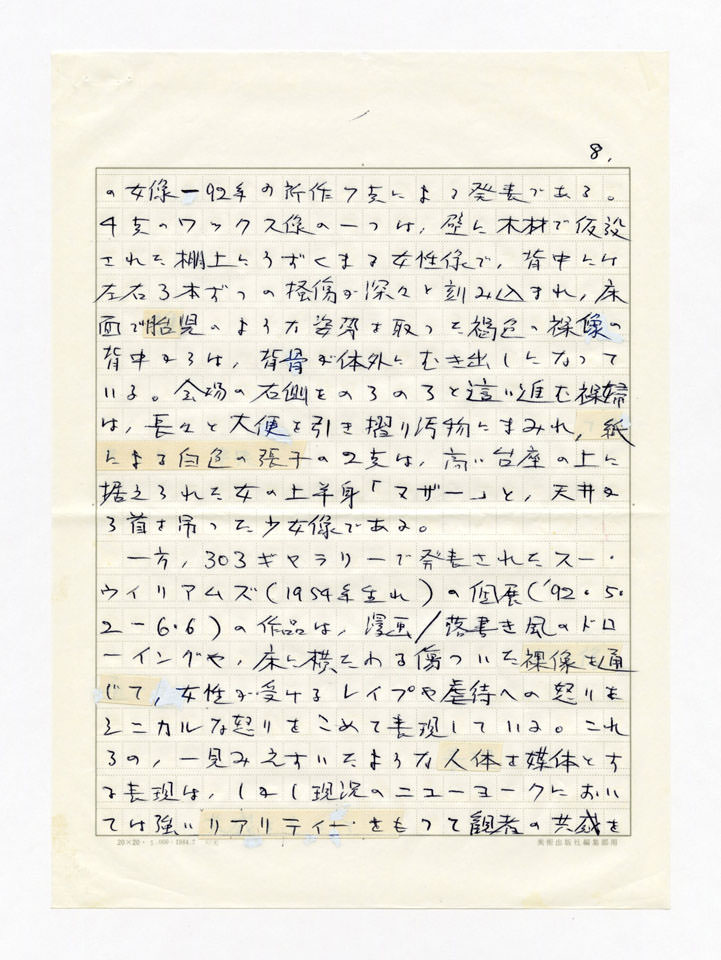 8.
の女像ー92年の新作7点による発表である。
4点のワックス像の一つは、壁に木材で仮設
された棚上にうずくまる女性像で、背中には
左右3本ずつの掻傷が深々と刻み込まれ、床
面で胎児のような姿勢を取った褐色の裸像の
背中からは、背骨が体外にむき出しになって
いる。会場の右側をのろのろと這い進む裸婦
は、長々と大便を引き摺り汚物にまみれ、紙
による白色の張子の2点は、高い台座の上に
据えられた女の上半身「マザー」と、天井か
ら首を吊った少女像である。
一方、303ギャラリーで発表されたスー・
ウィリアムズ(1954年生れ)の個展('92・5・
2－6・6)の作品は、漫画/落書き風のドロ
ーイングや、床に横たわる傷ついた裸像を通
じて、女性が受けるレイプや虐待への怒りを
シニカルな怒りをこめて表現している。これ
らの、一見みえすいたような人体を媒体とす
る表現は、しかし現況のニューヨークにおい
ては強いリアリティーをもって観者の共感を
20×20・1,000・1984.7
美術出版社編集部用